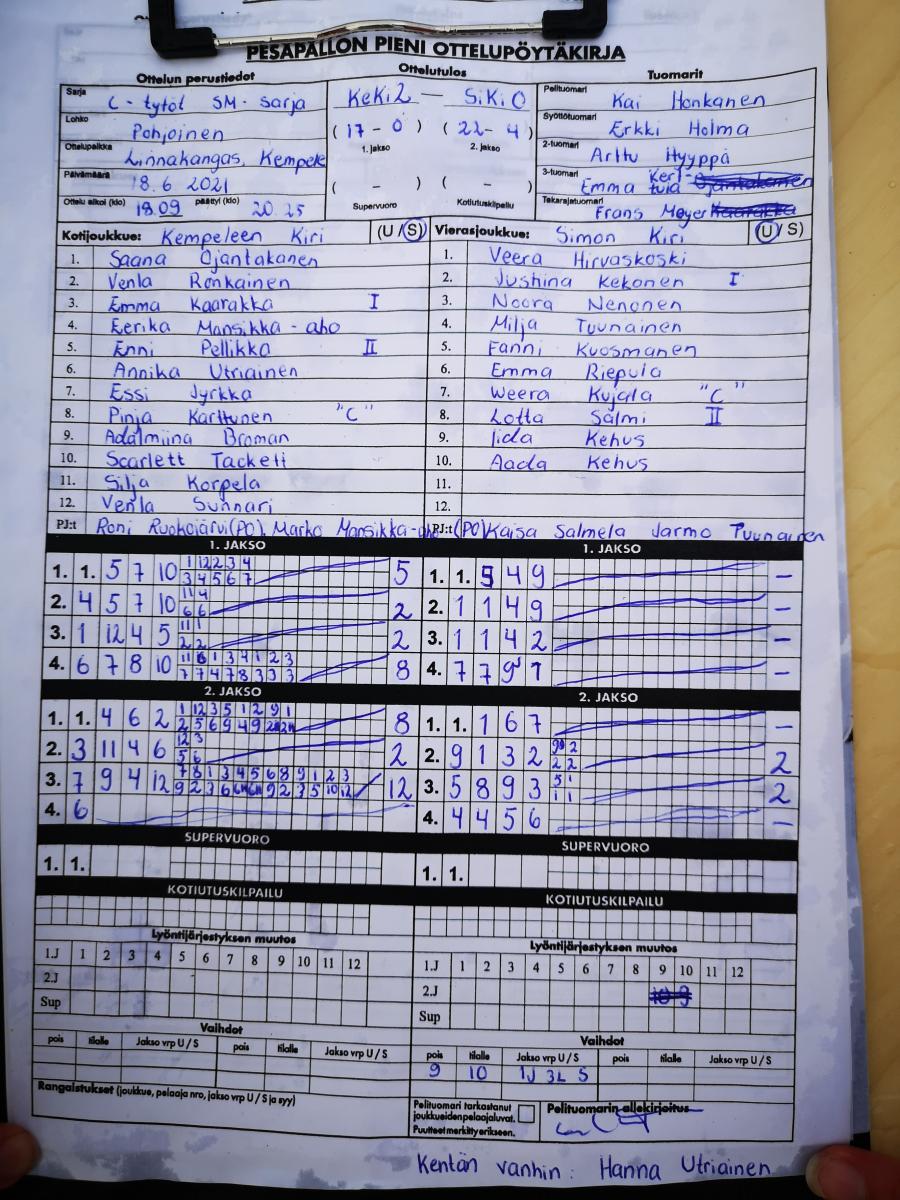 PESÄPALLON PIENI OTTELUPÖYTÄKIRJA
Ottelun perustiedot
Ottelutulos
Tuomarit
Sarja C - tytöt SM - sarja
KeKi2 — SiKi 0
Pelituomari Kai Honkanen
Lohko Pohjoinen
( 17 - 0 ) ( 22 - 4 )
Syöttötuomari Erkki Holma
1. jakso 2. jakso
Ottelupaikka Linnakangas, Kempele
2-tuomari Arttu Hyyppä
Päivämäärä 18.6 2021
( - ) ( - )
3-tuomari Emma Kert- tula
Ottelu alkoi (klo) 18.09 päättyi (klo) 20.25
Supervuoro Kotiutuskilpailu
Takarajatuomari Frans Meyer
Kotijoukkue: Kempeleen Kiri (U / S)
Vierasjoukkue: Simon Kiri (U / S)
1. Saana Ojantakanen
1. Veera Hirvaskoski
2. Venla Ronkainen
2. Jushina Kekonen I
3. Emma Kaarakka I
3. Noora Nenonen
4. Eerika Mansikka - aho
4. Milja Tuunainen
5. Enni Pellikka II
5. Fanni Kuosmanen
6. Annika Utriainen
6. Emma Riepula
7. Essi Jyrkkä
7. Weera Kujala "C"
8. Pinja Karttunen "C"
8. Lotta Salmi II
9. Adalmiina Broman
9. Iida Kehus
10. Scarlett Tackett
10. Aada Kehus
11. Silja Korpela
11.
12. Venla Sunnari
12.
PJ:t Roni Ruokojärvi(PO), Marko Mansikka-aho (PO)
PJ:t Kaisa Salmela Jarmo Tuunainen
1. JAKSO
1. JAKSO
1. 1. 5 7 10 1 12 2 3 4 5
3 4 5 6 7
1. 1. 5 4 9 –
2. 4 5 7 10 11 4 2
6 6
2. 1 1 4 9 –
3. 1 12 4 5 11 1 2
2 2
3. 1 1 4 2 –
4. 6 7 8 10 11 6 1 3 4 1 2 3 8
7 7 4 7 8 3 3 3
4. 7 7 9 1 –
2. JAKSO
2. JAKSO
1. 1. 4 6 2 1 12 3 5 1 2 9 1 8
2 5 6 9 4 9
1. 1. 1 6 7 –
2. 3 11 4 6 12 3 2
5 6
2. 9 1 3 2 2 2
2 2
3. 7 9 4 12 7 8 1 3 4 5 6 8 9 1 2 3 12
9 2 3 6 9 2 3 5 10 12
3. 5 8 9 3 5 1 2
1 1
4. 6
4. 4 4 5 6 –
SUPERVUORO
SUPERVUORO
1. 1.
1. 1.
KOTIUTUSKILPAILU
KOTIUTUSKILPAILU
Lyöntijärjestyksen muutos
Lyöntijärjestyksen muutos
1.J 1 2 3 4 5 6 7 8 9 10 11 12
1.J 1 2 3 4 5 6 7 8 9 10 11 12
2.J
2.J
Sup
Sup
Vaihdot
Vaihdot
pois tilalle Jakso vrp U / S pois tilalle Jakso vrp U / S
pois tilalle Jakso vrp U / S pois tilalle Jakso vrp U / S
9 10 1J 3L S
Rangaistukset (joukkue, pelaaja nro, jakso vrp U / S ja syy)
Pelituomari tarkastanut
joukkueiden pelaajaluvat.
Puutteet merkitty erikseen.
Pelituomarin allekirjoitus
Kentän vanhin: Hanna Utriainen